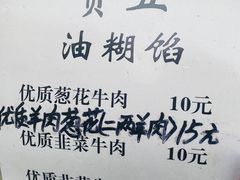 油糊馅
优质葱花牛肉 10元
优质羊肉葱花(二两羊肉)15元
优质韭菜牛肉 10元